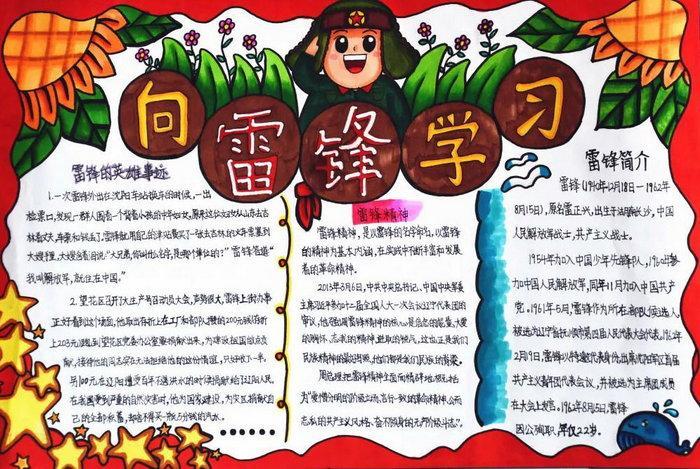 向雷锋学习
雷锋的英雄事迹
1.一次雷锋外出在沈阳车站换车的时候,一出
检票口,发现一群人围着一个背着小孩的中年妇女,原来这位妇女从山东去吉
林看丈夫,车票和钱丢了。雷锋就用自己的津贴费买了一张去吉林的火车票塞到
大嫂手里,大嫂含着泪说:“大兄弟,你叫什么名字,是哪个单位的?”雷锋答道“
我叫解放军,就住在中国。”
2.望花区召开了大生产号召动员大会,声势很大,雷锋上街办事
正好看到这个场面,他取出存折上在工厂和部队攒的200元钱
上203元,跑到望花区党委办公室要捐献出来,为建设祖国做点贡
献,接待他的同志实在无法拒绝他的这份情谊,只好收下一半。
另100元在辽阳遭受百年不遇洪水的时候捐献给了辽阳人民。
在我国受到严重的自然灾害时,他为国家建设,为灾区捐献出自
己的全部积蓄,却舍不得买一瓶5分钱的汽水。
雷锋精神
雷锋精神,是以雷锋的名字命名,以雷锋
的精神为基本内涵,在实践中不断丰富和发展
着的革命精神。
2013年3月6日,中共中央总书记、中国中央军委
主席习近平参加十二届全国人大一次会议辽宁代表团的
审议,他强调雷锋精神的核心是信念的能量、大爱
的胸怀、忘我的精神、进取的锐气,这也正是我们
民族精神的最好写照,他们都是我们民族的脊梁。
周总理把雷锋精神全面而精辟地概括
为“爱憎分明的阶级立场、言行一致的革命精神、公而
忘私的共产主义风格、奋不顾身的无产阶级斗志”。
雷锋简介
雷锋(1940年12月18日-1962年
8月15日),原名雷正兴,出生于湖南长沙,中国
人民解放军战士,共产主义战士。
1954年加入中国少年先锋队,1960年参
加中国人民解放军,同年11月加入中国共产
党。1961年5月,雷锋作为所在部队候选人
被选为辽宁省抚顺市第四届人民代表大会代表。1962年
2月19日,雷锋以特邀代表身份出席沈阳军区首届
共产主义青年团代表会议,并被选为主席团成员
在大会上发言。1962年8月15日,雷锋
因公殉职,年仅22岁。